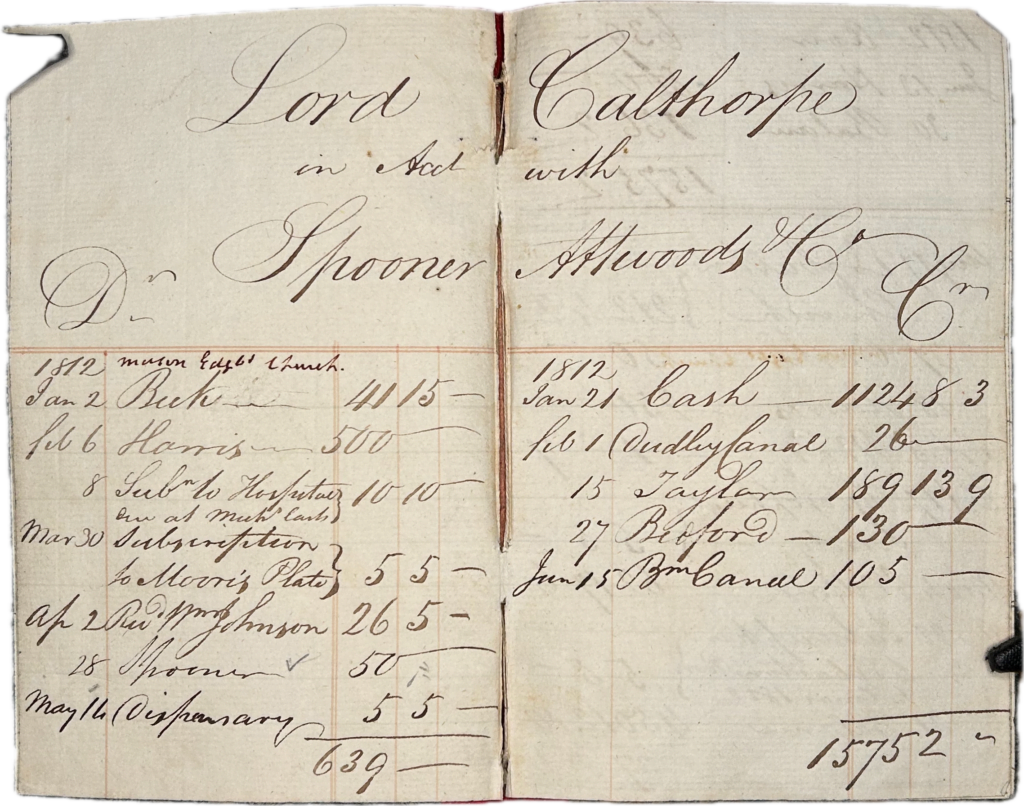 Lord Calthorpe
in Acct with
Spooner Attwoods & Co
Dr Cr
1812 mason Edgbn Church.
Jan 2 Beck 41 15 —
feb 6 Harris — 500 —
8 Subn to Hospital 10 10 —
due at Michs last
Mar 30 Subscription
to Moors Plate 5 5 —
Ap 2 Revd Wm Johnson 26 5 —
28 Spooner ✓ 50 —
May 14 Dispensary 5 5 —
639 —
1812
Jan 21 Cash — 1124 8 3
feb 1 Dudley Canal 26 —
15 Taylor 189 13 9
27 Bedford — 130 —
Jun 15 Bm Canal 105 —
1575 2 "